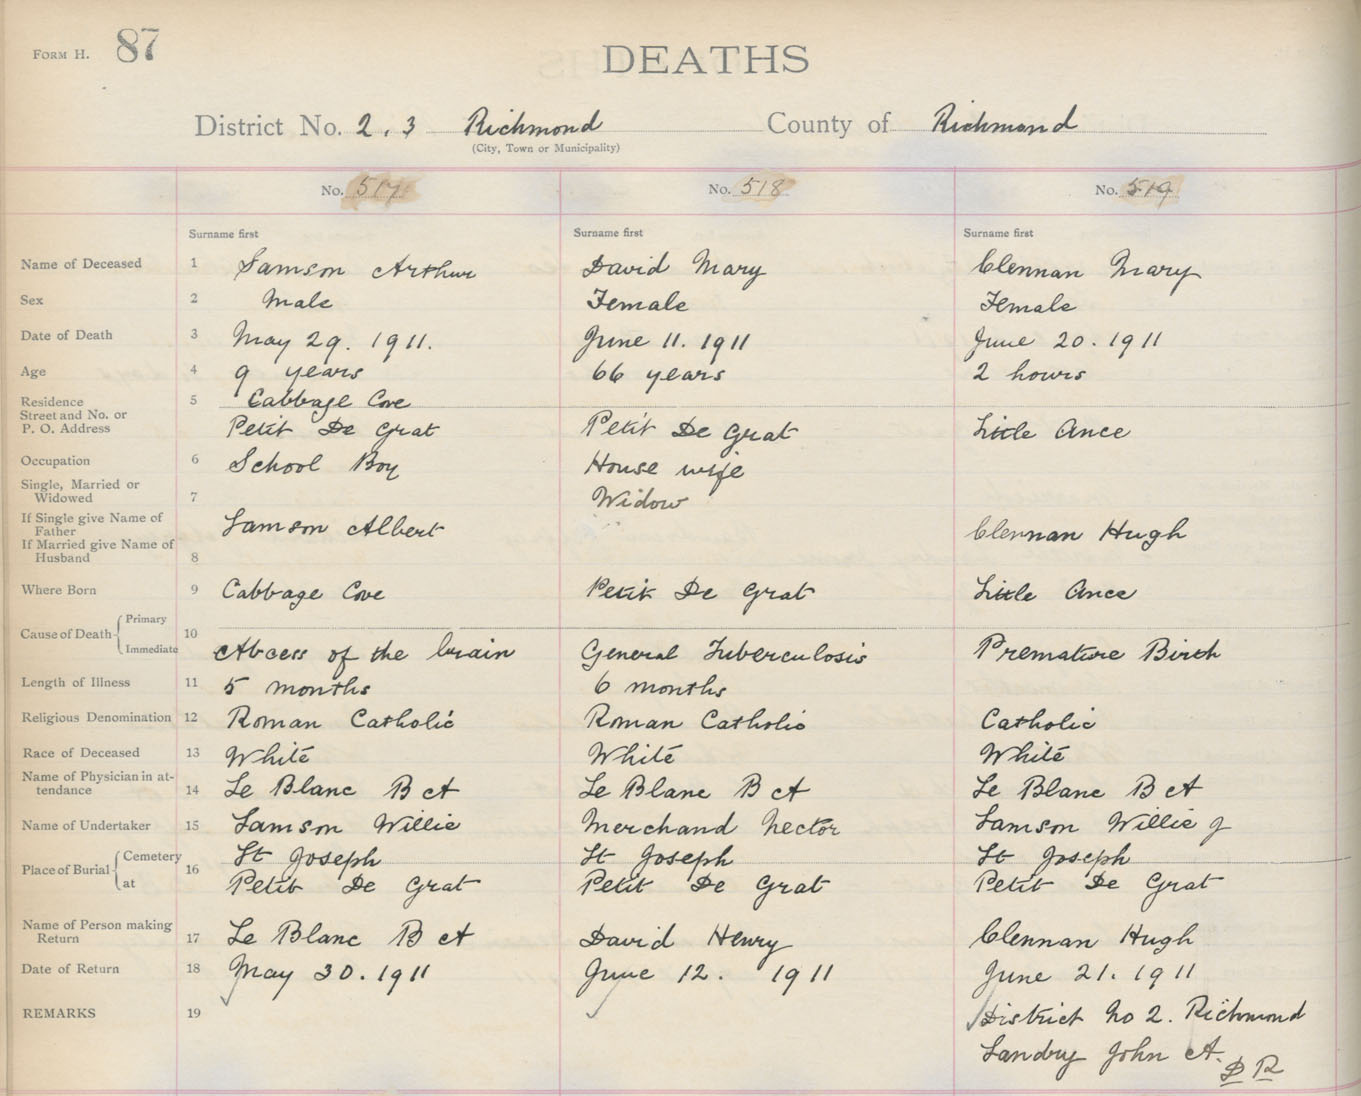 FORM H. 87
DEATHS
District No. 2. 3 Richmond County of Richmond
(City, Town or Municipality)
No. 517 No. 518 No. 519
Surname first Surname first Surname first
Name of Deceased 1 Samson Arthur David Mary Clennan Mary
Sex 2 Male Female Female
Date of Death 3 May 29. 1911. June 11. 1911 June 20. 1911
Age 4 9 years 66 years 2 hours
Residence 5 Cabbage Cove
Street and No. or
P. O. Address Petit De Grat Petit De Grat Little Ance
Occupation 6 School Boy House wife
Single, Married or
Widowed 7 Widow
If Single give Name of
Father Samson Albert Clennan Hugh
If Married give Name of
Husband 8
Where Born 9 Cabbage Cove Petit De Grat Little Ance
Cause of Death Primary 10
Immediate Abcess of the brain General Tuberculosis Premature Birth
Length of Illness 11 5 months 6 months
Religious Denomination 12 Roman Catholic Roman Catholic Catholic
Race of Deceased 13 White White White
Name of Physician in at-
tendance 14 Le Blanc B A Le Blanc B A Le Blanc B A
Name of Undertaker 15 Samson Willie Merchand Nector Samson Willie J
Place of Burial Cemetery 16 St Joseph St Joseph St Joseph
at Petit De Grat Petit De Grat Petit De Grat
Name of Person making
Return 17 Le Blanc B A David Henry Clennan Hugh
Date of Return 18 May 30. 1911 June 12. 1911 June 21. 1911
REMARKS 19 District No 2. Richmond
Landry John A.
D R